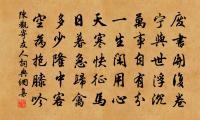 廢書開復卷
寧與世浮沉
萬事自有分
一生閒用心
天寒快征馬
日暮急歸禽
多少隆中客
空為抱膝吟
陳觀寄友人詞典網喜